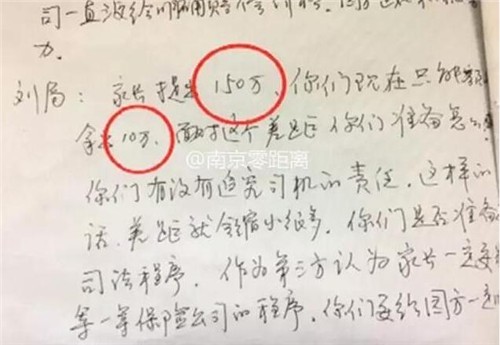 司一直没给明确赔
力.
刘局: 家长提出150万、你们现在只能
拿出10万、面对这个差距你们准备怎么
@南京零距离
你们有没有追究司机的责任. 这样的
话. 差距就会缩小很多. 你们是否准备
司法程序. 作为第三方认为家长一定要
等一等保险公司的程序. 你们要给园方一